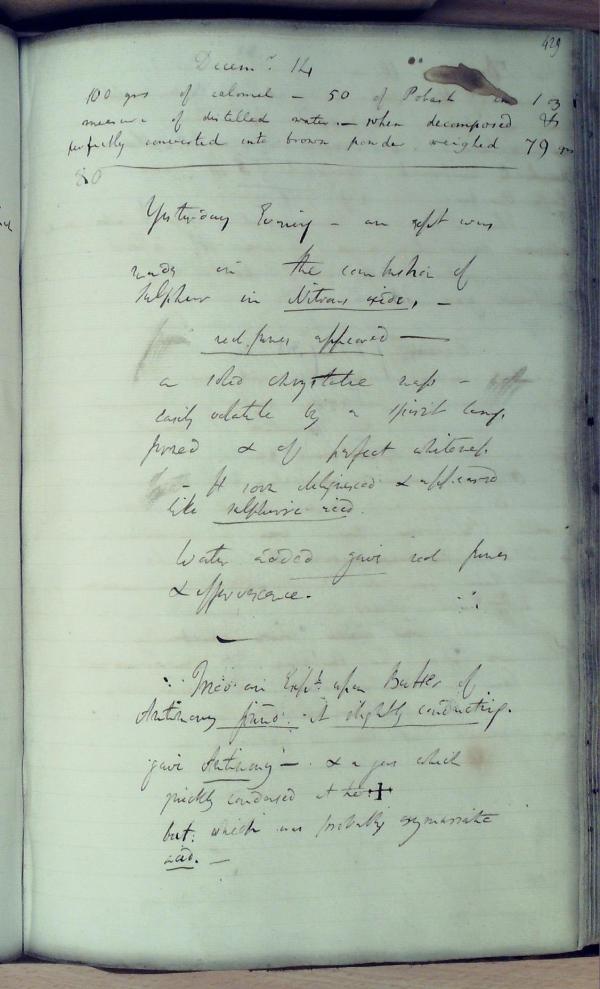 429
Decemr. 14
100 grs of calomel – 50 of Potash in 1 oz
measure of distilled water. – when decomposed &
perfectly converted into brown powder weighed 79 grs
80
Yesterday Evening – an expt was
made on the combustion of
Sulphur in Nitrous oxide, –
red fumes appeared —
a solid chrystalline mass –
easily volatile by a spirit lamp.
fused & of perfect whiteness.
– It soon deliquesced & appeared
like sulphuric acid.
Water added gave red fumes
& effervescence.
Tried an Expt. upon Butter of
Antimony fused. It slightly conducting.
gave Antimony – & a gas which
quickly condensed at the +
but. which was probably oxymuriatic
acid. –